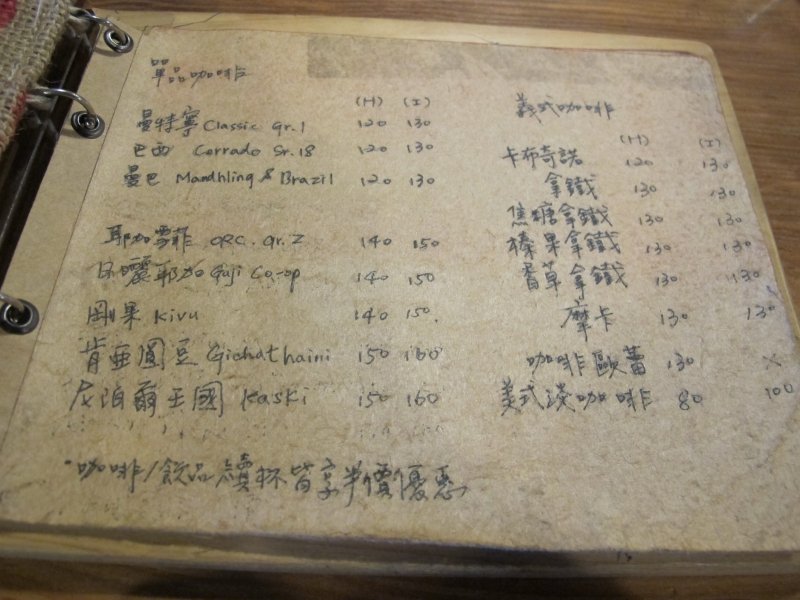 單品咖啡
(H) (I)
曼特寧 Classic Gr.1 120 130
巴西 Cerrado Sr.18 120 130
曼巴 Mandhling & Brazil 120 130
耶加雪菲 ORC. Gr.2 140 150
耶加 Guji Co-op 140 150
剛果 Kivu 140 150.
肯亞圓豆 Gichathaini 150 160
尼泊爾王國 Kaski 150 160
咖啡/飲品續杯皆享半價優惠
義式咖啡
(H) (I)
卡布奇諾 120 130
拿鐵 130 130
焦糖拿鐵 130 130
榛果拿鐵 130 130
香草拿鐵 130 130
摩卡 130 130
咖啡歐蕾 130 ×
美式淡咖啡 80 100